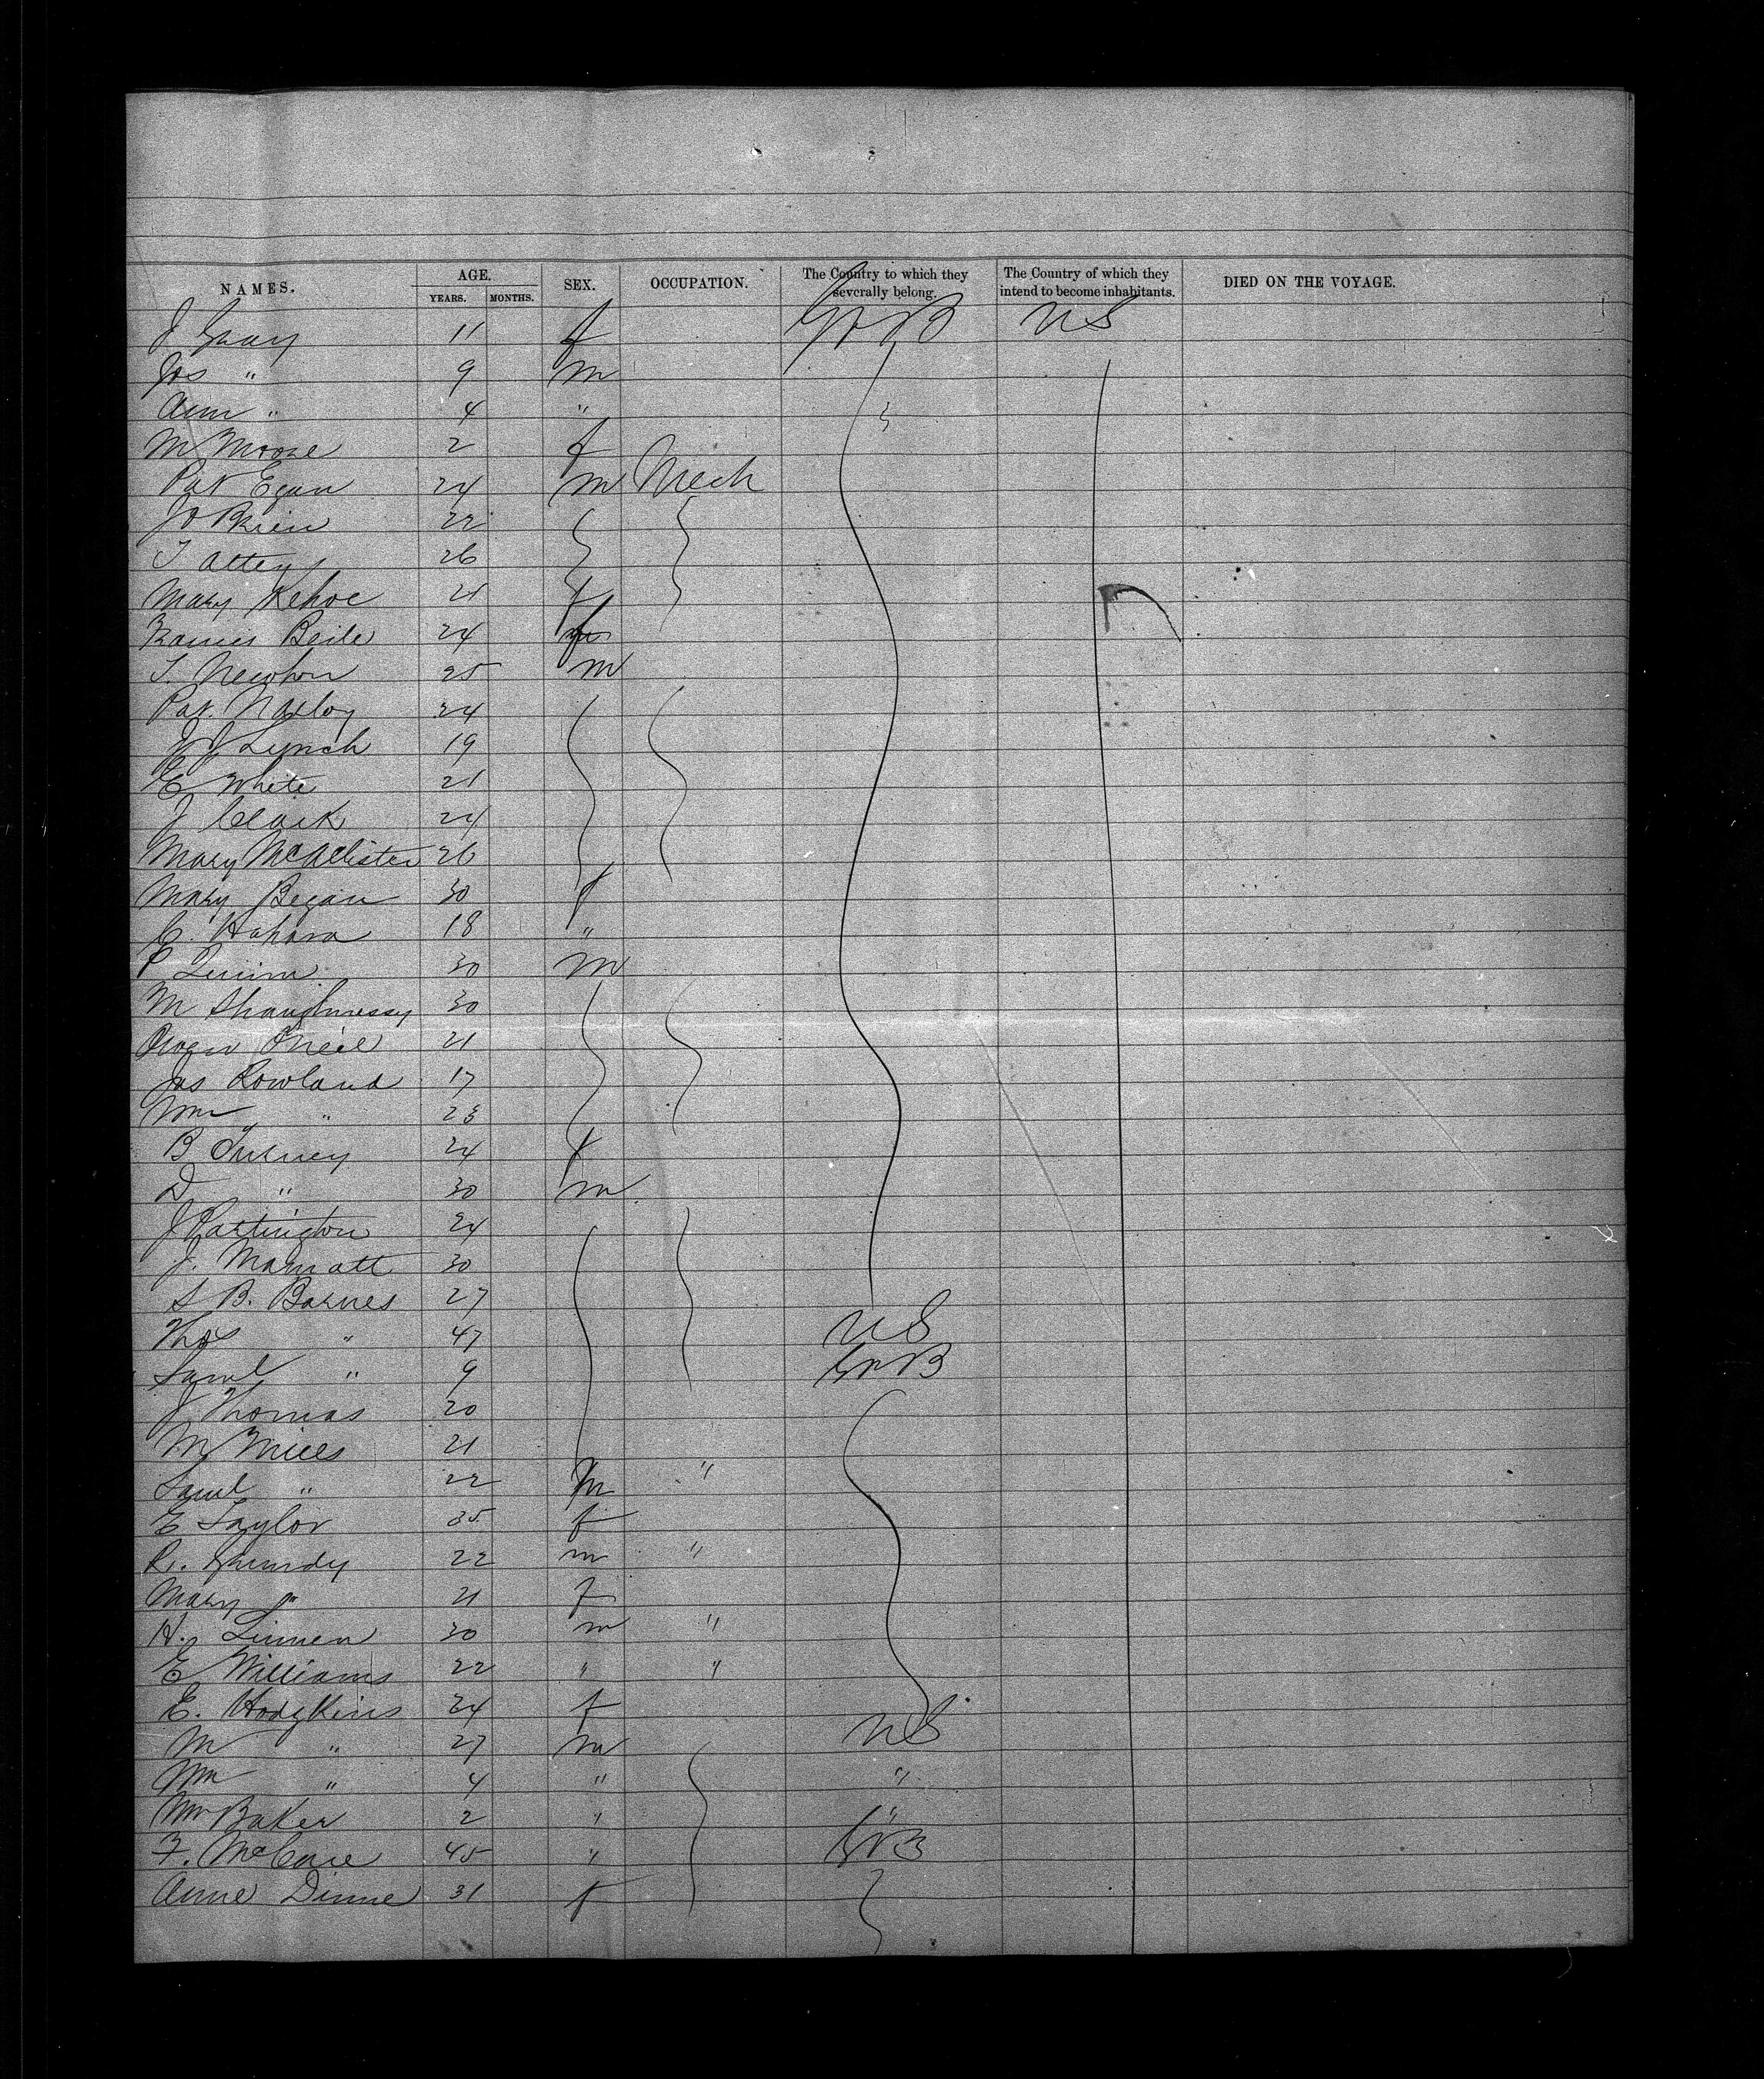 NAMES. AGE. YEARS. MONTHS. SEX. OCCUPATION. The Country to which they severally belong. The Country of which they intend to become inhabitants. DIED ON THE VOYAGE.
J Gray 11 f Gr B U S
Jos " 9 m
Ann " 4 "
M Moore 2 f
Pat Egan 24 m Mech
J O Brien 22
T Attey 26
Mary Kehoe 21 f
24
T. Newton 25 m
Pat. 24
J J Lynch 19
E White 21
J Clark 24
Mary McAllister 26
Mary Began 30 f
C. Hahara 18 "
P Quinn 30 m
M Shaughnessy 30
Owen O'Neil 21
Jas Rowland 17
Wm " 23
B Turney 24 f
D " 30 m
J Partington 24
J. Marratt 30
S B. Barnes 27
Thos " 47 U S
Saml " 9 Gr B
J Thomas 20
M Mills 21
Saml " 22 m "
E Taylor 35 f
R. Grundy 22 m "
Mary " 21 f
H. Linnen 30 m "
E Williams 22 " "
E. Hodgkins 24 f
M " 27 m U S
Wm " 4 " "
Baker 2 " "
F. McCave 45 " Gr B
Anne Dinne 31 f